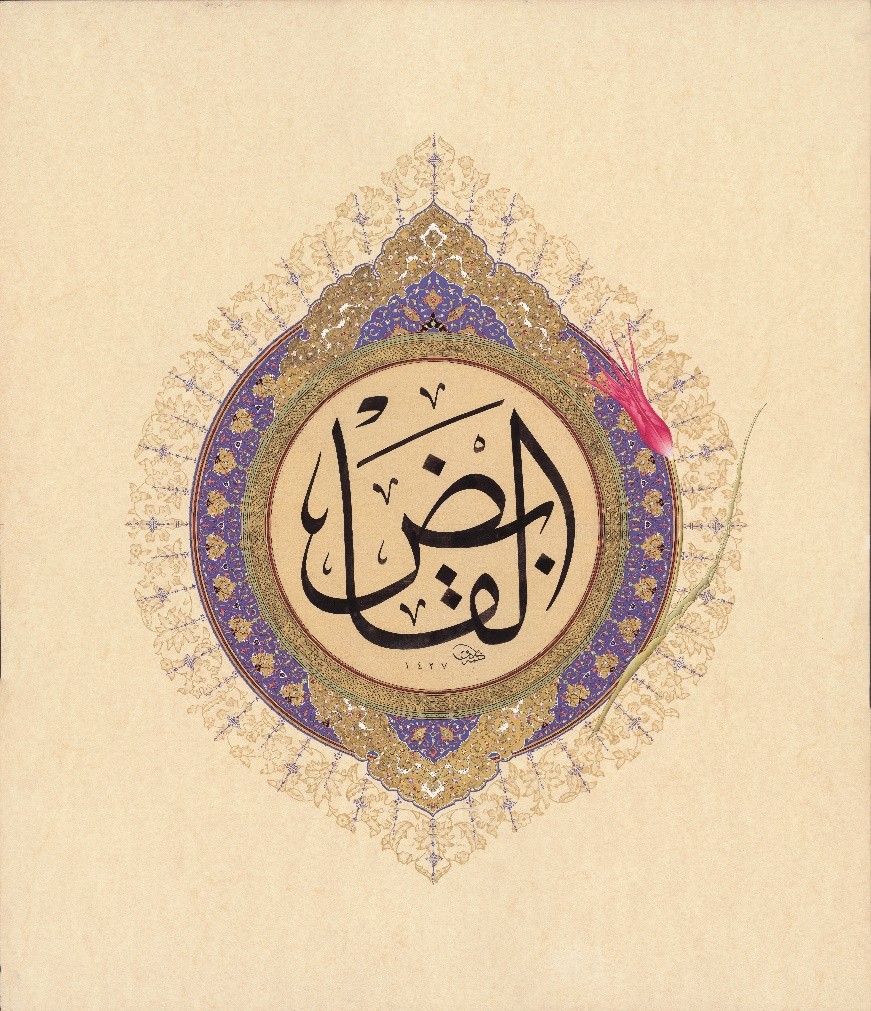 القابض
١٤٢٧